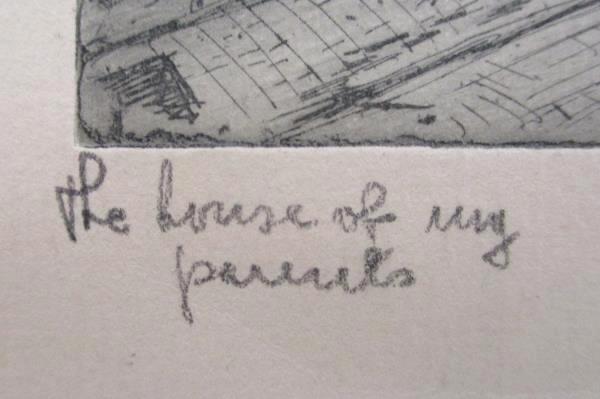 the house of my
parents